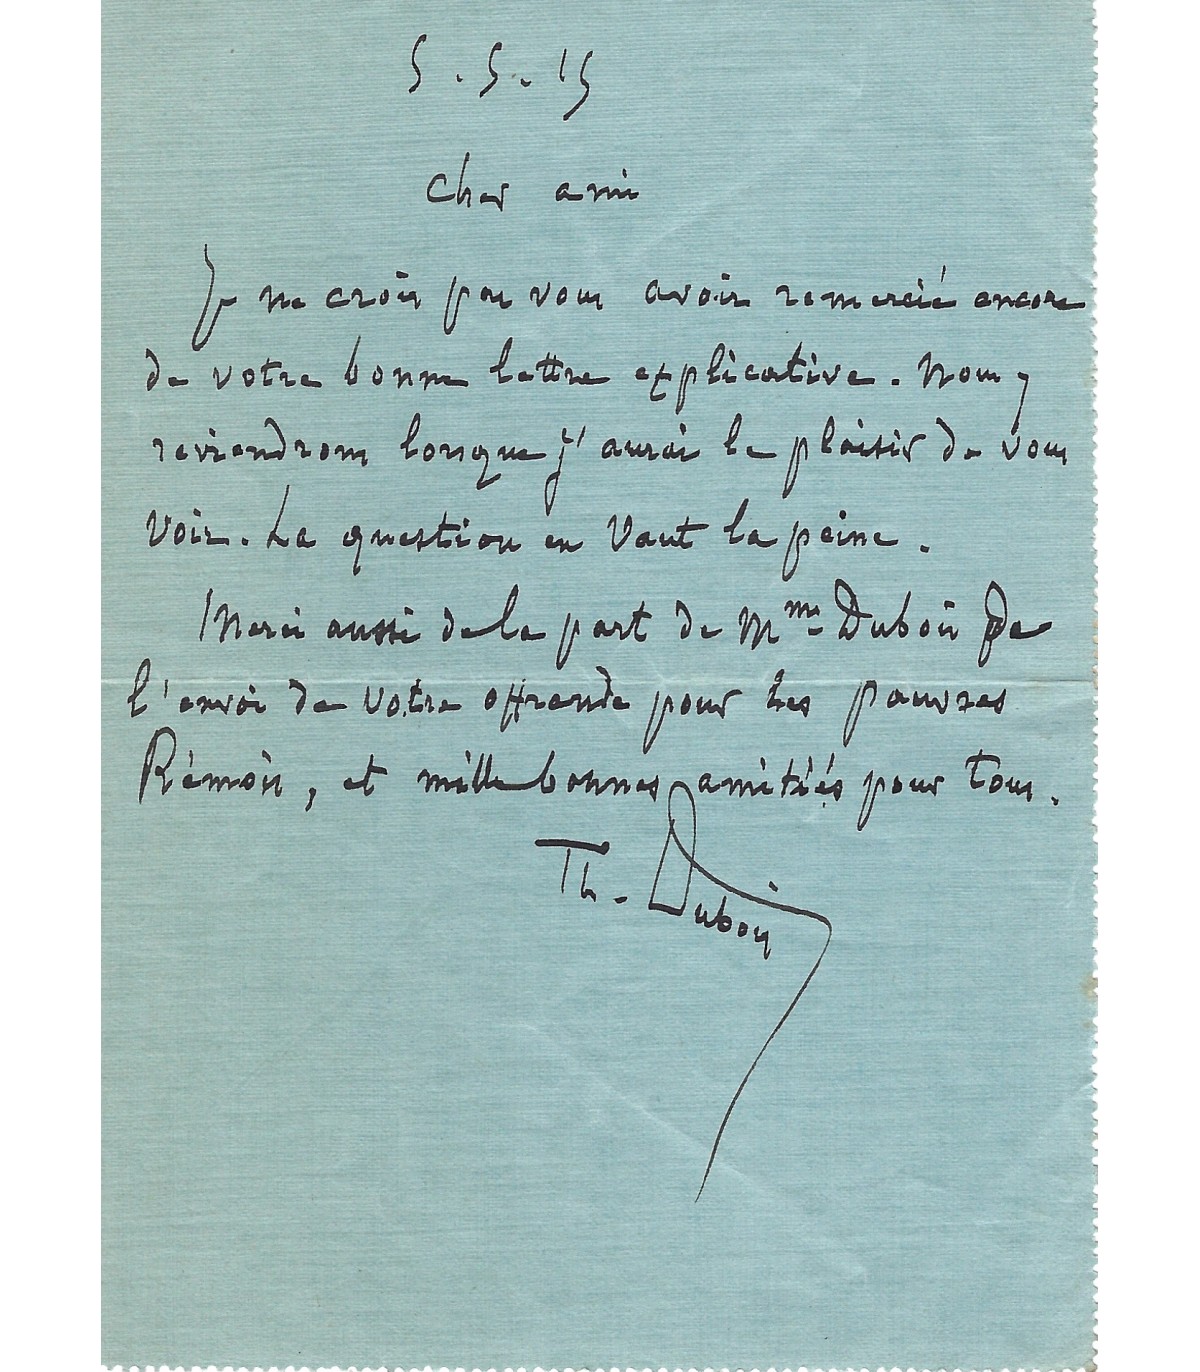 5.5.15
Cher ami
Je ne crois pas vous avoir remercié encore
de votre bonne lettre explicative. Nous y
reviendrons lorsque j'aurai le plaisir de vous
voir. La question en vaut la peine.
Merci aussi de la part de Mme Dubois de
l'envoi de votre offrande pour les pauvres
Rémois, et mille bonnes amitiés pour tous.
Th. Dubois